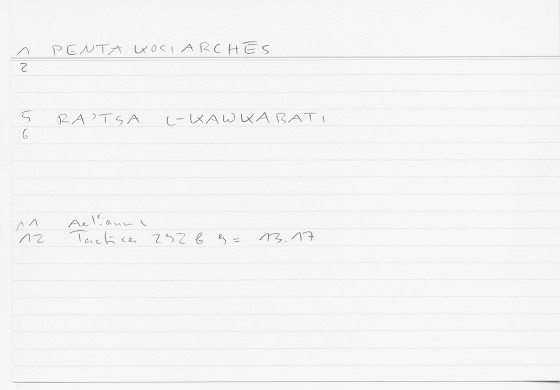 1 PENTAKOSIARCHĒS
2
5 RA'TSA L-KAWKABATI
6
11 Aelianus
12 Tactica 292 b 9 = 13.17